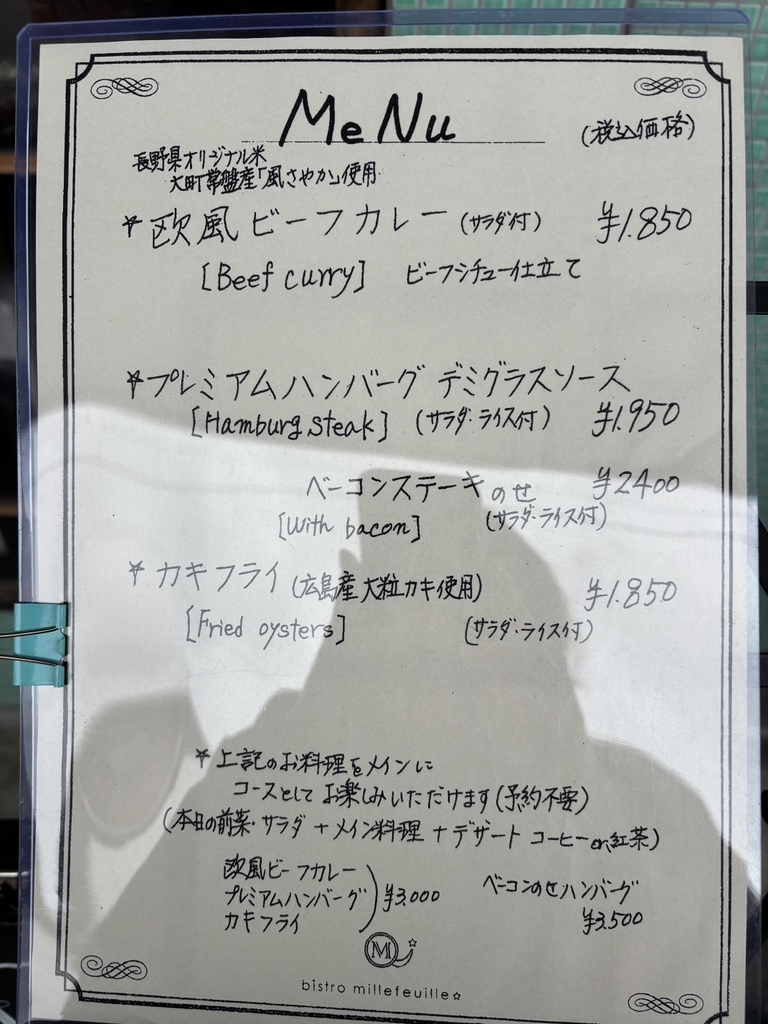 MeNu
(税込価格)
長野県オリジナル米
大町常盤産「風さやか」使用
☆欧風ビーフカレー(サラダ付) ¥1.850
[Beef curry] ビーフシチュー仕立て
☆プレミアムハンバーグ デミグラスソース
[Hamburg steak] (サラダ・ライス付) ¥1.950
ベーコンステーキのせ ¥2400
[With bacon] (サラダ・ライス付)
☆カキフライ(広島産大粒カキ使用) ¥1.850
[Fried oysters] (サラダ・ライス付)
☆上記のお料理をメインに
コースとしてお楽しみいただけます(予約不要)
(本日の前菜・サラダ+メイン料理+デザート コーヒーor紅茶)
欧風ビーフカレー
プレミアムハンバーグ ¥3.000
カキフライ
ベーコンのせハンバーグ
¥3.500
M
bistro millefeuille☆